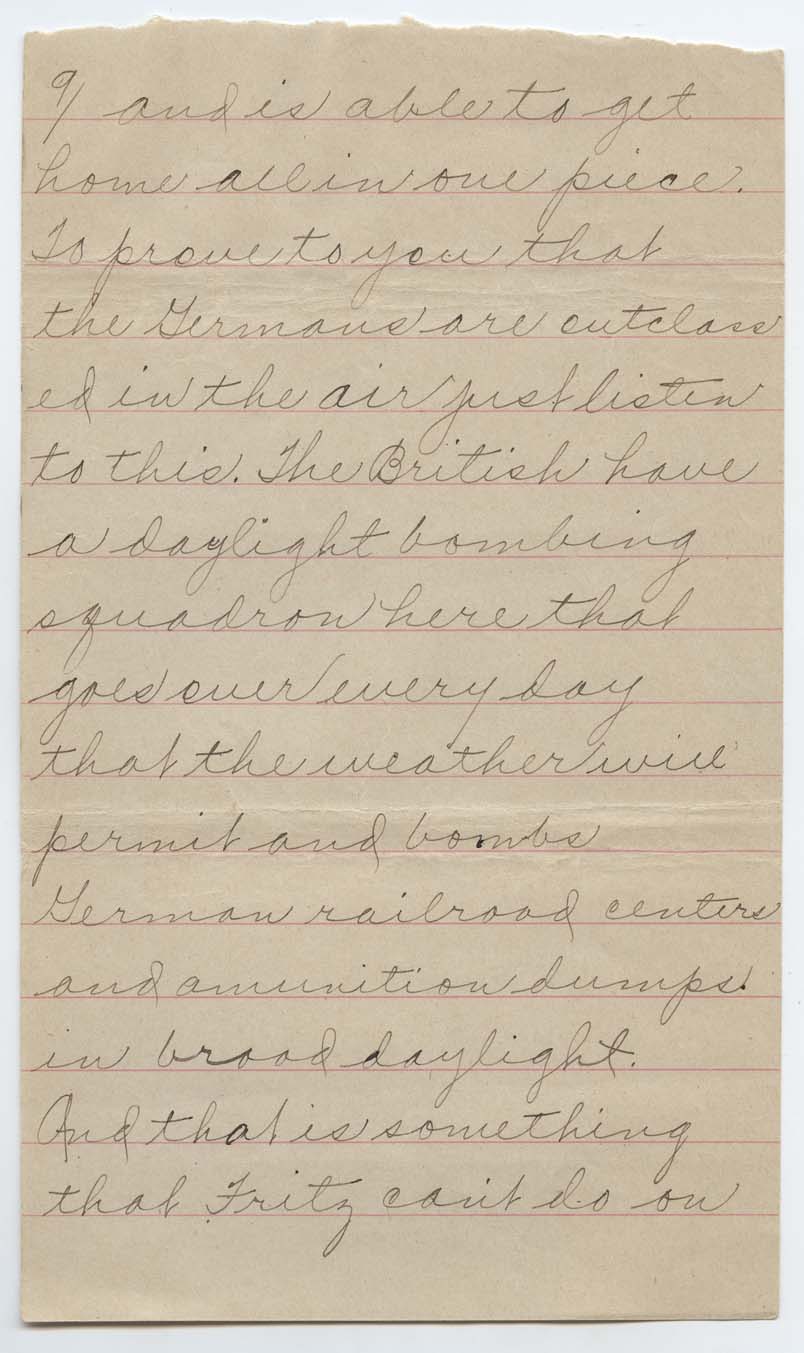 9/ and is able to get
home all in one piece.
To prove to you that
the Germans are outclass
ed in the air just listen
to this. The British have
a daylight bombing
squadron here that
goes over every day
that the weather will
permit and bombs
German railroad centers
and amunition dumps.
in broad daylight.
And that is something
that Fritz can't do on